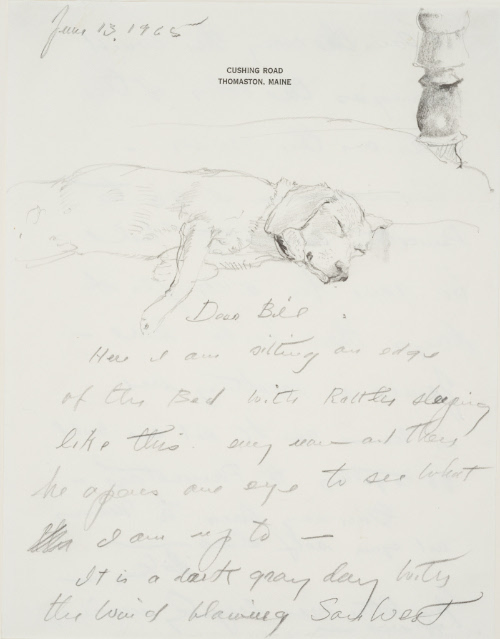 June 13, 1965
CUSHING ROAD
THOMASTON, MAINE
Dear Bill,
Here I am sitting on edge
of the Bed with Rattler sleeping
like this. every now and then
he opens one eye to see what
I am up to —
It is a dark gray day with
the wind blowing Sou West